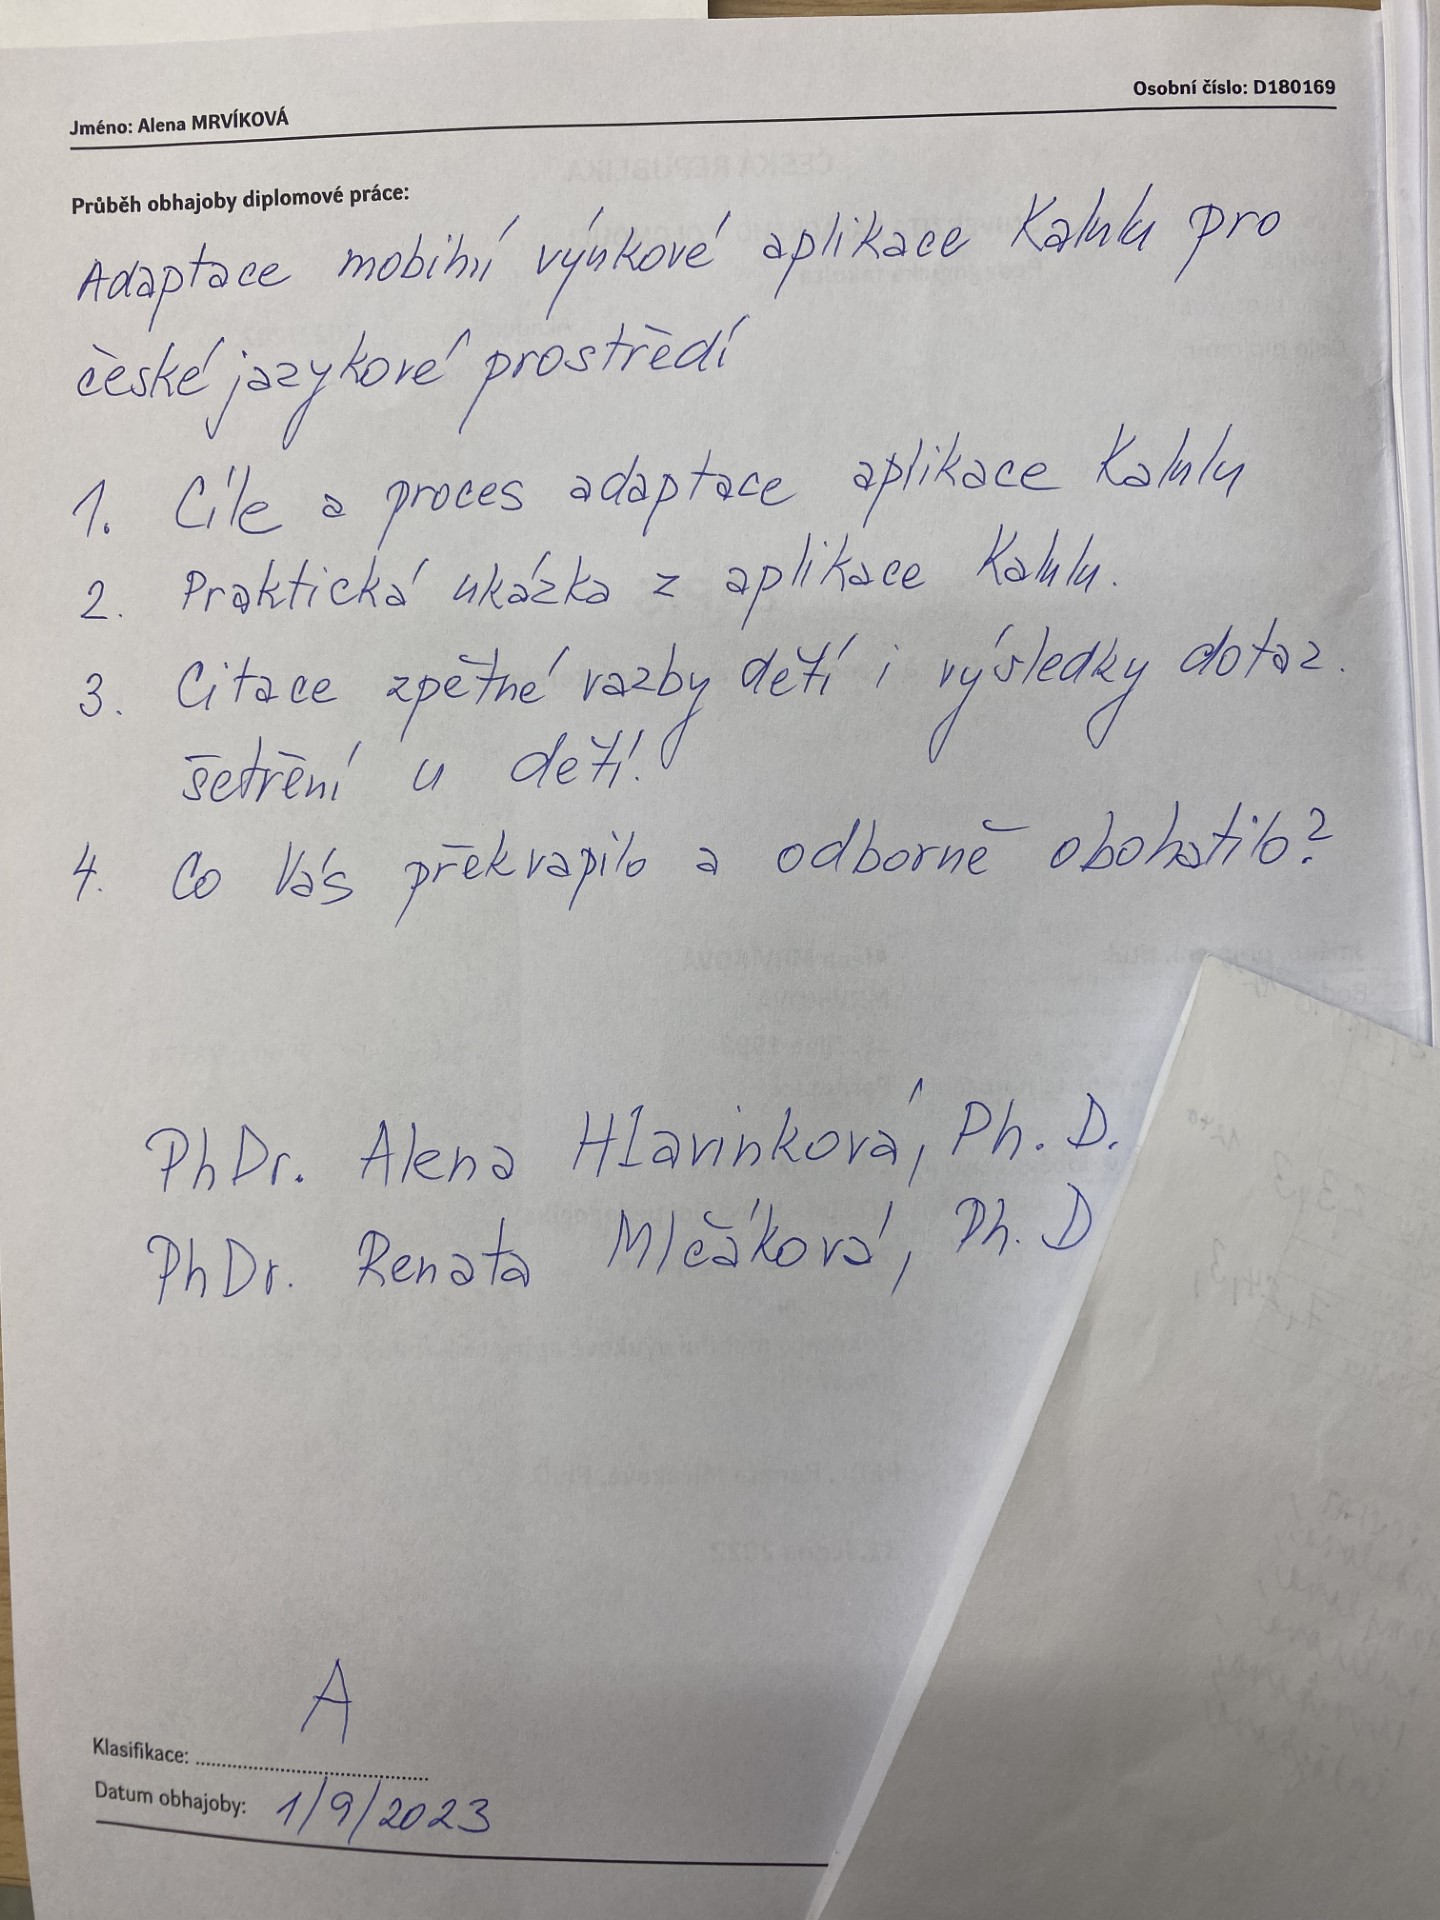 Jméno: Alena MRVÍKOVÁ
Osobní číslo: D180169
Průběh obhajoby diplomové práce:
Adaptace mobilní výukové aplikace Kalulu pro
české jazykové prostředí
1. Cíle a proces adaptace aplikace Kalulu
2. Praktická ukázka z aplikace Kalulu.
3. Citace zpětné vazby dětí i výsledky dotaz.
šetření u dětí.
4. Co Vás překvapilo a odborně obohatilo?
PhDr. Alena Hlavinková, Ph. D.
PhDr. Renata Mlčáková, Ph. D
A
Klasifikace:
Datum obhajoby: 1/9/2023